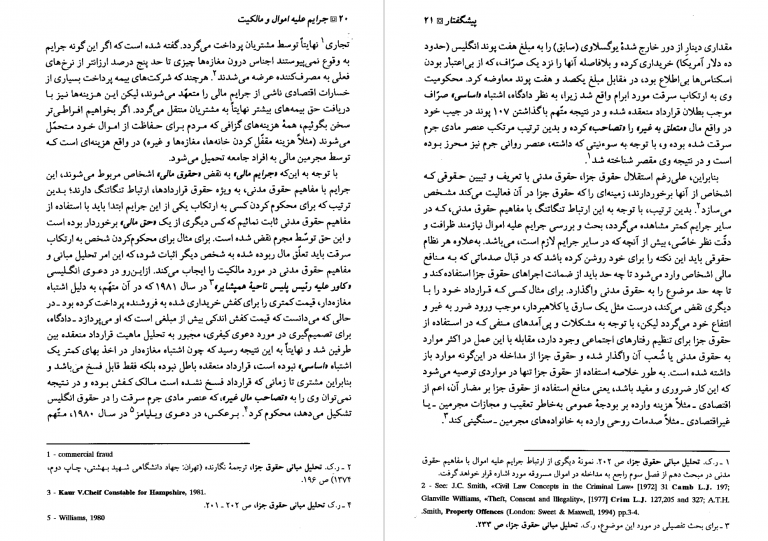 ۲۰ ▣ جرایم علیه اموال و مالکیت
تجاری۱ نهایتاً توسط مشتریان پرداخت می‌گردد. گفته شده است که اگر این گونه جرایم
به وقوع نمی‌پیوستند اجناس درون مغازه‌ها چیزی تا حد پنج درصد ارزانتر از نرخ‌های
فعلی به مصرف‌کننده عرضه می‌شدند.۲ هرچند که شرکت‌های بیمه پرداخت بسیاری از
خسارات اقتصادی ناشی از جرایم مالی را متعهد می‌شوند، لیکن این هزینه‌ها نیز با
دریافت حق بیمه‌های بیشتر نهایتاً به مشتریان منتقل می‌گردد. اگر بخواهیم افراطی‌تر
سخن بگوئیم، همهٔ هزینه‌های گزافی که مردم برای حفاظت از اموال خود متحمل
می‌شوند (مثلاً هزینه مقفّل کردن خانه‌ها، مغازه‌ها و غیره) در واقع هزینه‌ای است که
توسط مجرمین مالی به افراد جامعه تحمیل می‌شود.
با توجه به این‌که «جرایم مالی» به نقض «حقوق مالی» اشخاص مربوط می‌شوند، این
جرایم با مفاهیم حقوق مدنی، به ویژه حقوق قراردادها، ارتباط تنگاتنگ دارند؛ بدین
ترتیب که برای محکوم کردن کسی به ارتکاب یکی از این جرایم ابتدا باید با استفاده از
مفاهیم حقوق مدنی ثابت نمائیم که کس دیگری از یک «حق مالی» برخوردار بوده است
و این حق توسّط مجرم نقض شده است. برای مثال برای محکوم‌کردن شخص به ارتکاب
سرقت باید تعلّق مال ربوده شده به شخص دیگر اثبات شود، که این امر تحلیل مبانی و
مفاهیم حقوق مدنی در مورد مالکیت را ایجاب می‌کند. ازاین‌رو در دعوی انگلیسی
«کاور علیه رئیس پلیس ناحیهٔ همپشایر»۳ در سال ۱۹۸۱ که در آن متّهم، به دلیل اشتباه
مغازه‌دار، قیمت کمتری را برای کفش خریداری شده به فروشنده پرداخت کرده بود ـ در
حالی که می‌دانست که قیمت کفش اندکی بیش از مبلغی است که او می‌پردازد ـ دادگاه،
برای تصمیم‌گیری در مورد دعوی کیفری، مجبور به تحلیل ماهیت قرارداد منعقده بین
طرفین شد و نهایتاً به این نتیجه رسید که چون اشتباه مغازه‌دار در اخذ بهای کمتر یک
اشتباه «اساسی» نبوده است، قرارداد منعقده باطل نبوده بلکه فقط قابل فسخ می‌باشد و
بنابراین مشتری تا زمانی که قرارداد فسخ نشده است مالک کفش بوده و در نتیجه
نمی‌توان وی را به «تصاحب مال غیر»، که عنصر مادی جرم سرقت را در حقوق انگلیس
تشکیل می‌دهد، محکوم کرد.۴ برعکس، در دعوی ویلیامز۵ در سال ۱۹۸۰، متّهم
1 - commercial fraud
۲ ـ ر.ک. تحلیل مبانی حقوق جزا، ترجمهٔ نگارنده (تهران: جهاد دانشگاهی شهید بهشتی، چاپ دوم،
۱۳۷۴) ص ۱۹۶.
3 - Kaur V.Cheif Constable for Hampshire, 1981.
۴ ـ ر.ک تحلیل مبانی حقوق جزا، ص ۲۰۲ ـ ۲۰۱.
5 - Williams, 1980
پیشگفتار ▣ ۲۱
مقداری دینار از دور خارج شدهٔ یوگسلاوی (سابق) را به مبلغ هفت پوند انگلیس (حدود
ده دلار آمریکا) خریداری کرده و بلافاصله آنها را نزد یک صرّاف، که از بی‌اعتبار بودن
اسکناس‌ها بی‌اطلاع بود، در مقابل مبلغ یکصد و هفت پوند معاوضه کرد. محکومیت
وی به ارتکاب سرقت مورد ابرام واقع شد زیرا، به نظر دادگاه، اشتباه «اساسی» صرّاف
موجب بطلان قرارداد منعقده شده و در نتیجه متّهم باگذاشتن ۱۰۷ پوند در جیب خود
در واقع مال «متعلق به غیر» را «تصاحب» کرده و بدین ترتیب مرتکب عنصر مادی جرم
سرقت شده بوده و، با توجه به سوءنیتی که داشته، عنصر روانی جرم نیز محرز بوده
است و در نتیجه وی مقصر شناخته شد.۱
بنابراین، علی‌رغم استقلال حقوق جزا، حقوق مدنی با تعریف و تبیین حقوقی که
اشخاص از آنها برخوردارند، زمینه‌ای را که حقوق جزا در آن فعالیت می‌کند مشخص
می‌سازد.۲ بدین ترتیب، با توجه به این ارتباط تنگاتنگ با مفاهیم حقوق مدنی، که در
سایر جرایم کمتر مشاهده می‌گردد، بحث و بررسی جرایم علیه اموال نیازمند ظرافت و
دقّت نظر خاصّی، بیش از آنچه که در سایر جرایم لازم است، می‌باشد. به‌علاوه هر نظام
حقوقی باید این نکته را برای خود روشن کرده باشد که در قبال صدماتی که به منافع
مالی اشخاص وارد می‌شود تا چه حد باید از ضمانت اجراهای حقوق جزا استفاده کند و
تا چه حد موضوع را به حقوق مدنی واگذارد. برای مثال کسی که قرارداد خود را با
دیگری نقض می‌کند، درست مثل یک سارق یا کلاهبردار، موجب ورود ضرر به غیر و
انتفاع خود می‌گردد لیکن، با توجه به مشکلات و پی‌آمدهای منفی که در استفاده از
حقوق جزا برای تنظیم رفتارهای اجتماعی وجود دارد، مقابله با این عمل در اکثر موارد
به حقوق مدنی یا شُعب آن واگذار شده و حقوق جزا از مداخله در این‌گونه موارد باز
داشته شده است. به طور خلاصه استفاده از حقوق جزا تنها در مواردی توصیه می‌شود
که این کار ضروری و مفید باشد، یعنی منافع استفاده از حقوق جزا بر مضار آن، اعم از
اقتصادی ـ مثلاً هزینه وارده بر بودجهٔ عمومی به‌خاطر تعقیب و مجازات مجرمین ـ یا
غیراقتصادی ـ مثلاً صدمات روحی وارده به خانواده‌های مجرمین ـ سنگینی کند.۳
۱ ـ ر.ک. تحلیل مبانی حقوق جزا، ص ۲۰۲. نمونهٔ دیگری از ارتباط جرایم علیه اموال با مفاهیم حقوق
مدنی در مبحث دوم از فصل سوم راجع به مداخله در اموال مسروقه مورد اشاره قرار خواهد گرفت.
2 - See: J.C. Smith, «Civil Law Concepts in the Criminal Law» [1972] 31 Camb L.J. 197;
Glanville Williams, «Theft, Consent and Illegality», [1977] Crim L.J. 127,205 and 327; A.T.H.
.Smith, Property Offences (London: Sweet & Maxwell, 1994) pp.3-4.
۳ ـ برای بحث تفصیلی در مورد این موضوع، ر.ک. تحلیل مبانی حقوق جزا، ص ۲۳۳.